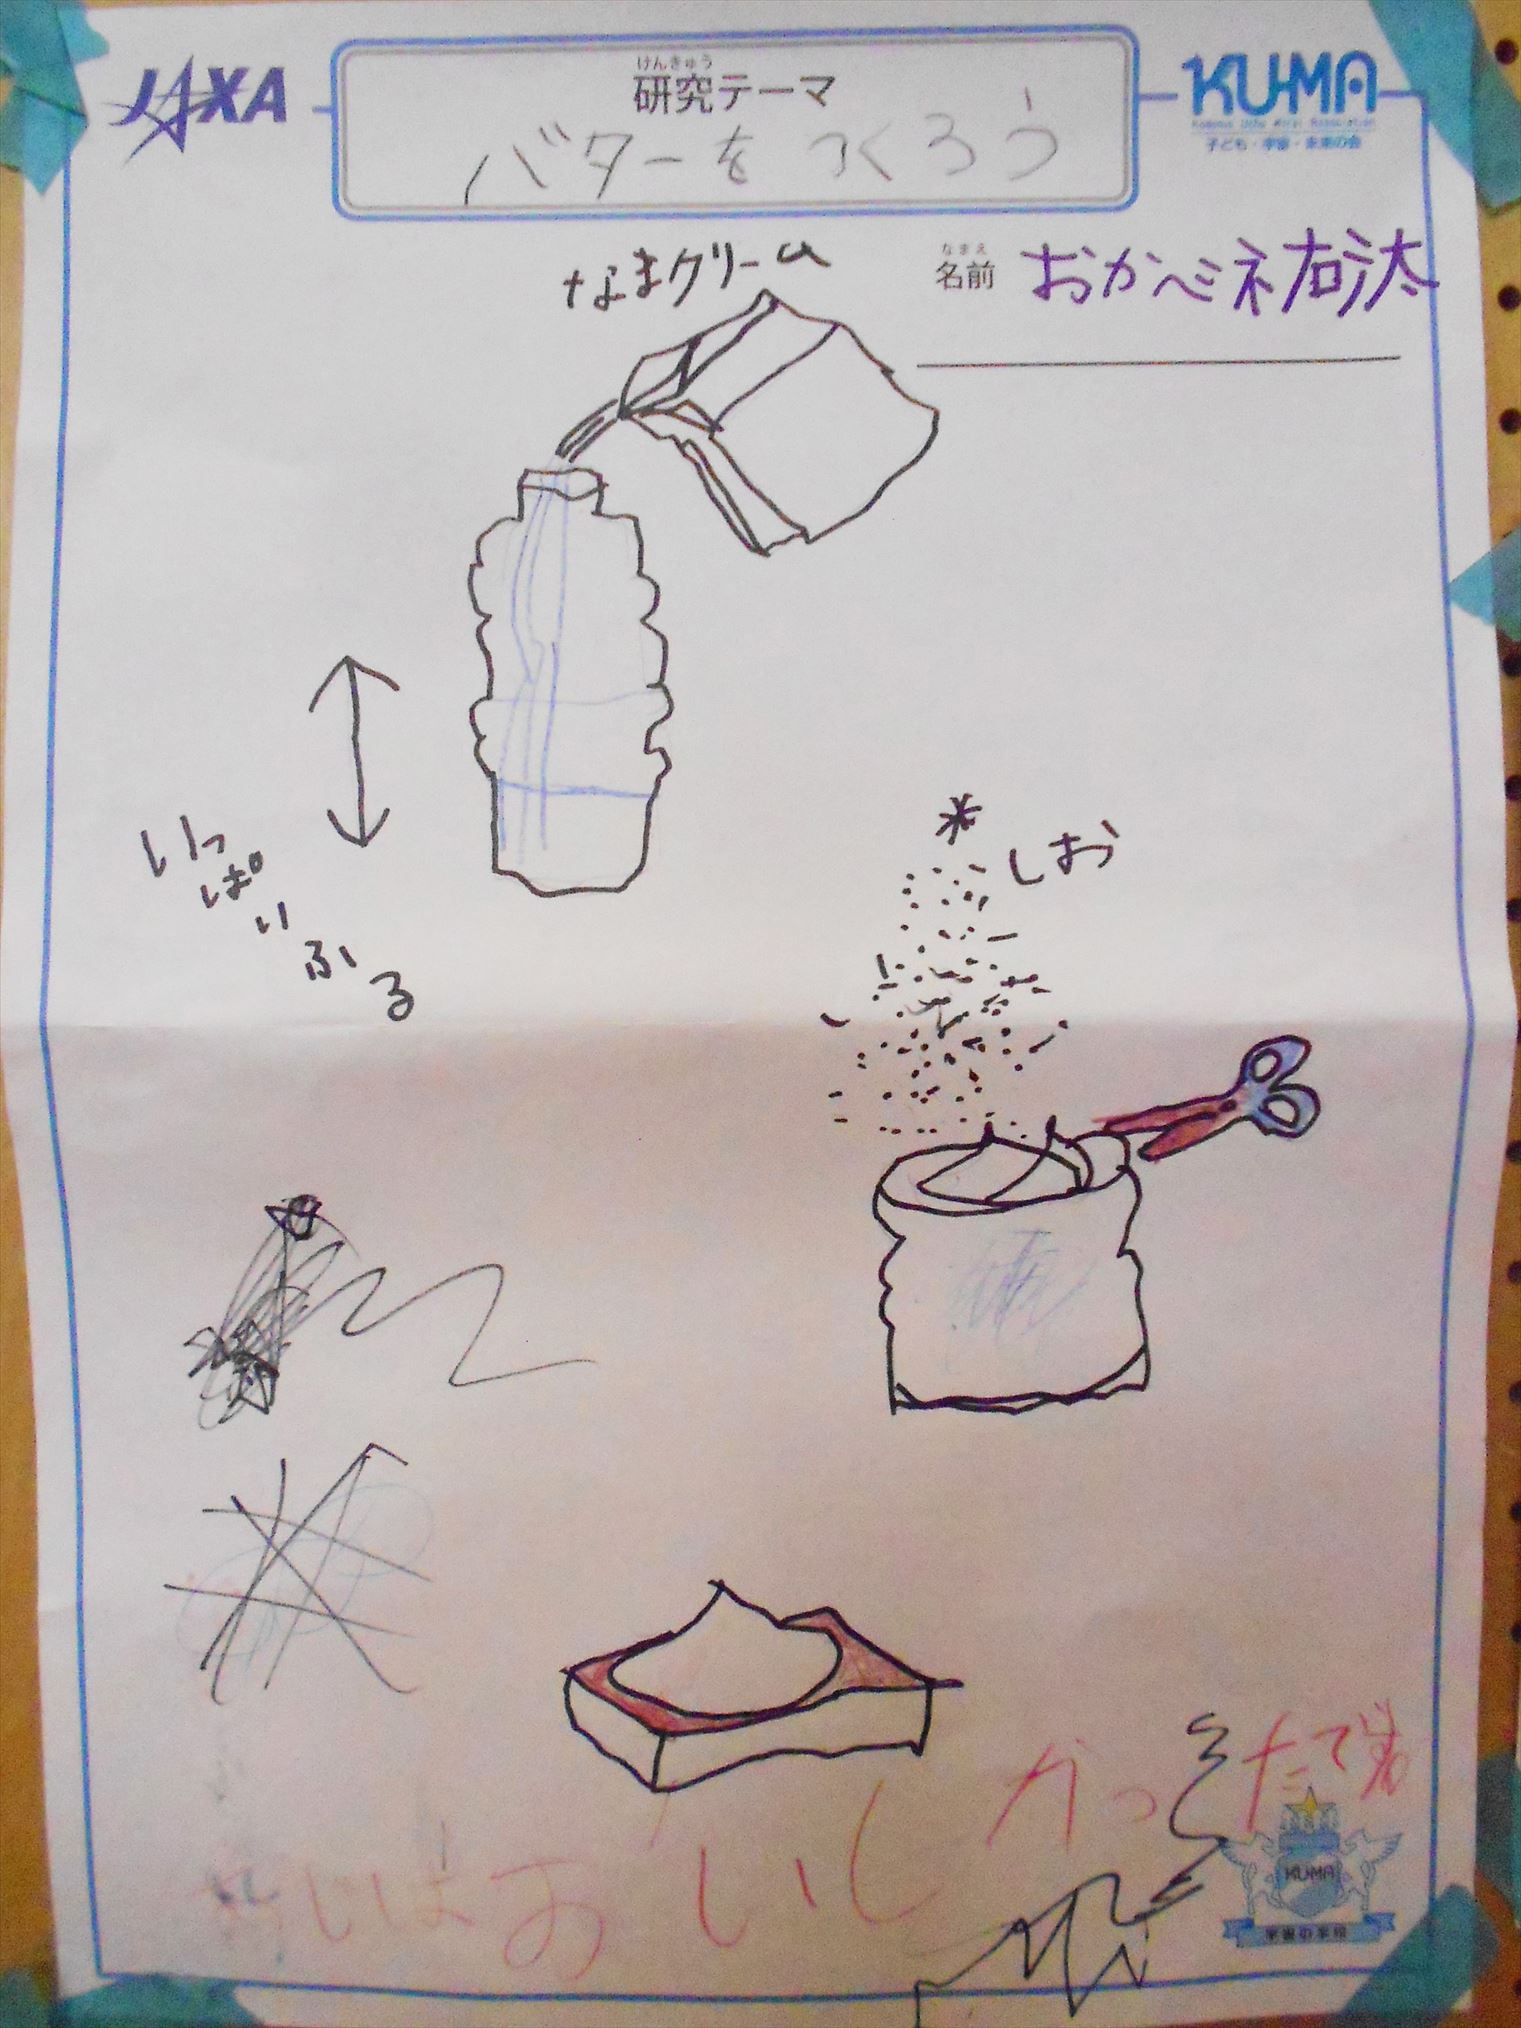 JAXA
けんきゅう
研究テーマ
バターをつくろう
KU-MA
子ども・宇宙・未来の会
なまクリーム
なまえ
名前 おかべ祐汰
いっぱいふる
しお
はおいしかった
KUMA
宇宙の学校